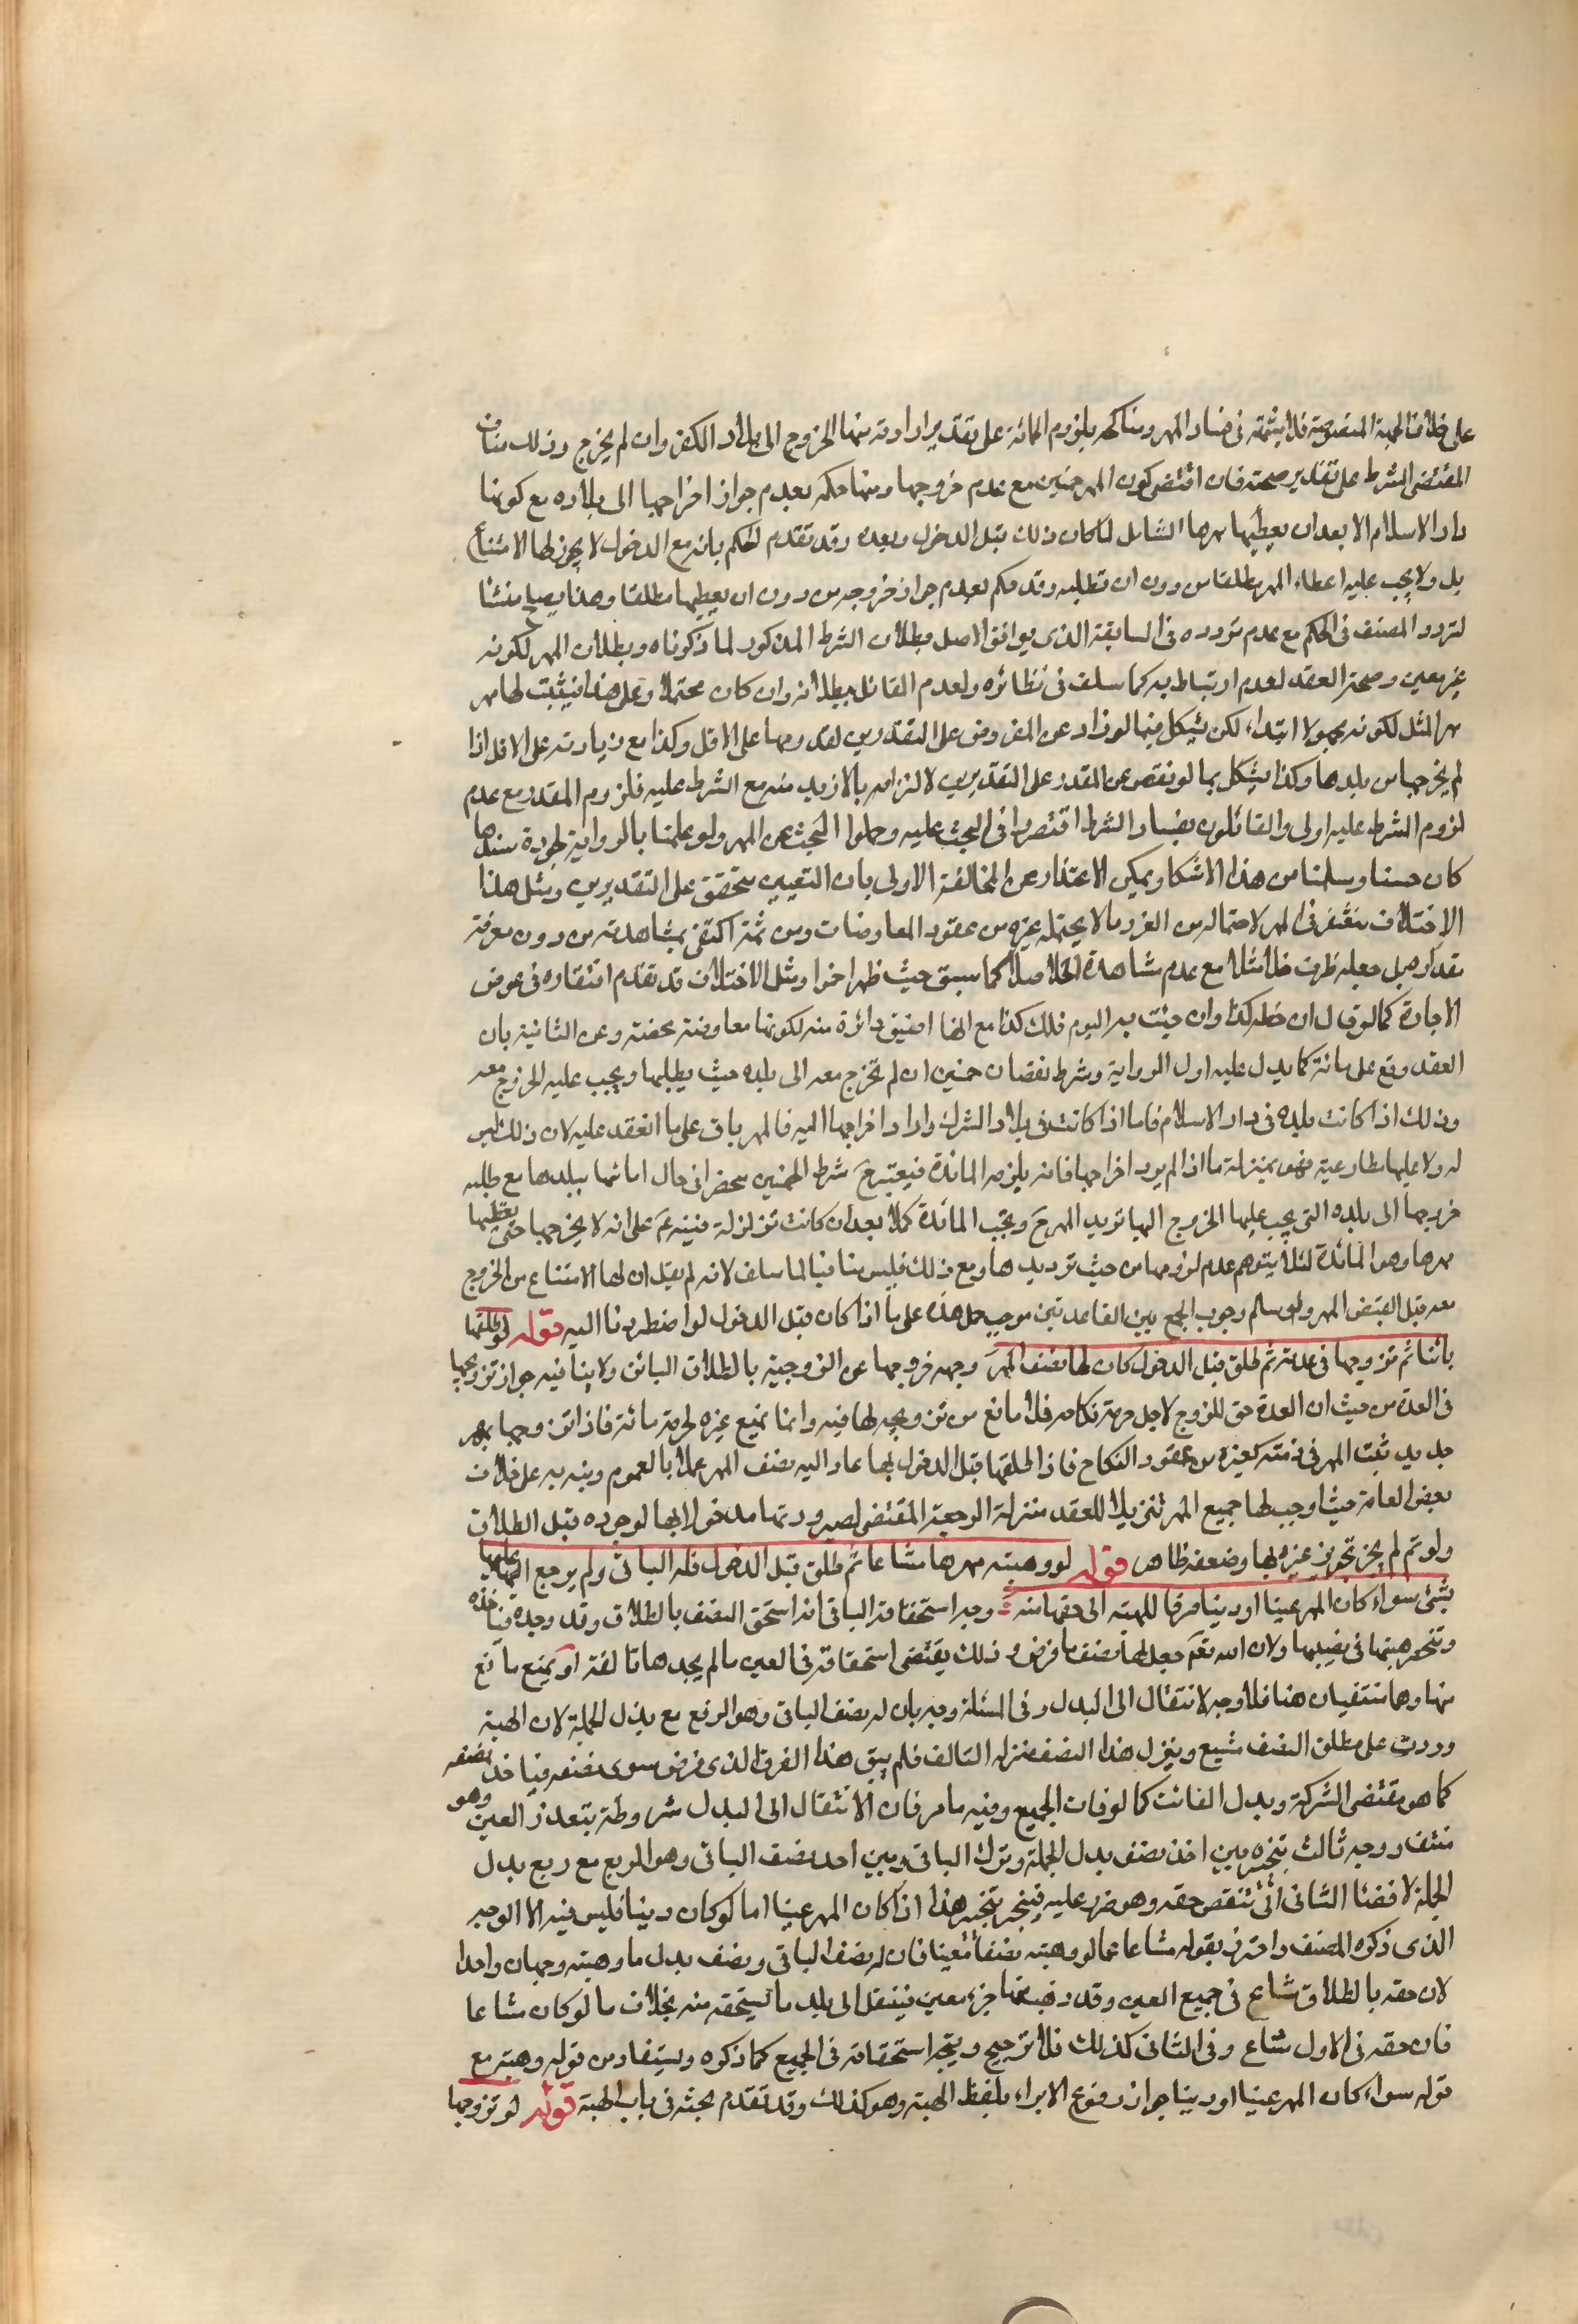 على خلاف الجهة المنفردية فلا يثمر في فساد المهر ومنها حكمه بلزوم المائة على تقدير ارادته منها الخروج الى بلاد الكفر وان لم يخرج وذلك مناف
المقتضى الشرط على تقدير صحته فان اقتضى كون المهر خمسين مع عدم خروجها ومنها حكمه بعدم جواز اخراجها الى بلاده مع كونها
دار الاسلام الا بعد ان يعطيها مهرها الشامل لما كان ذلك قبل الدخول وبعده وقد تقدم الحكم بانه مع الدخول لا يجوز لها الامتناع
بل ولا يجب عليه اعطاء المهر مطلقا من دون ان تطلبه وقد حكم بعدم جواز خروجه من دون ان يعطيها مطلقا وهذا يصلح منشأ
لتردد المصنف في الحكم مع عدم تردده في السابقة الذي يوافق الاصل بطلان الشرط المذكور لما ذكرناه وبطلان المهر لكونه
غير معين وصحة العقد لعدم ارتباط به كما سلف في نظائره ولعدم القائل ببطلانه وان كان محتملا وعلى هذا فيثبت لها مهر
مهر المثل لكونه مجهولا ابتداء لكن يشكل فيما لو زاد عن المفروض على التقديرين لقدومها على الاقل وكذا مع زيادته على الاقل اذا
لم يخرجها من بلدها وكذا يشكل بما لو نقص عن المقدر على التقديرين لالتزامه بالازيد منه مع الشرط عليه فلزوم المقدر مع عدم
لزوم الشرط عليه اولى والقائلون بفساد الشرط اقتصروا في البحث عليه وحملوا البحث عن المهر ولو علمنا بالرواية لجودة سندها
كان حسنا وسلمنا من هذا الاشكال ويمكن الاعتذار عن المخالفة الاولى بان التعيين متحقق على التقديرين ومثل هذا
الاختلاف مغتفر في المهر لاحتماله من الغرر ما لا يحتمله غيره من عقود المعاوضات ومن ثمة اكتفى بمشاهدته من دون معرفة
مقداره بل جعله ظرف خلا مثلا مع عدم مشاهدة الخل اصلا كما سبق حيث ظهر اخمرا ومثل الاختلاف قد تقدم اغتفاره في عوض
الاجارة كما لو قال ان خطه كذا وان جئت به اليوم فلك كذا مع انها اضيق دائرة منه لكونها معاوضة محضة وعن الثانية بان
العقد وقع على مائة كما يدل عليه اول الرواية وشرط نقصان خمسين ان لم تخرج معه الى بلده حيث يطلبها ويجب عليه الخروج معه
وذلك اذا كانت بلده في دار الاسلام فاما اذا كانت في بلاد الشرك واراد اخراجها اليه فالمهر باق على ما انعقد عليه لان ذلك ليس
له ولا عليها مطاوعته فهو بمنزلة ما اذا لم يرد اخراجها فانه يلزمه المائة فيعتبر ح شرط الخمسين منحصرا في حال امتناعها ببلدها مع طلبه
خروجها الى بلده التي يجب عليها الخروج اليها تزيد المهر ح ويجب المائة كملا بعد ان كانت متزلزلة فنبه ع على انه لا يخرجها حتى يعطيها
مهرها وهو المائة لئلا يتوهم عدم لزومها من حيث ترديدها ومع ذلك فليس منافيا لما سلف لانه لم يقل ان لها الامتناع من الخروج
معه قبل القبض المهر ولو سلم وجوب الجمع بين القاعدتين موجب حمل هذه على ما اذا كان قبل الدخول لو اضطررنا اليه قوله لو طلقها
بائنا ثم تزوجها في عدته ثم طلق قبل الدخول كان لها نصف المهر وجهه خروجها عن الزوجية بالطلاق البائن ولا ينافيه جواز تزويجها
في العدة من حيث ان العدة حق للزوج لاجل حرمة نكاحه فلا مانع من تزويجه لها فيه وانما تمنع غيره لحرمة مائه فاذا تزوجها بمهر
جديد ثبت المهر في ذمته كغيره من عقود النكاح فاذا طلقها قبل الدخول بها عاد اليه نصف المهر عملا بالعموم ونبه به على خلاف
بعض العامة حيث اوجب لها جميع المهر تنزيلا للعقد منزلة الرجعة المقتضى لصيرورتها مدخولا بها لوجوده قبل الطلاق
ولو تم لم يجز تحويز غيره لها وضعفه ظاهر قوله لو وهبته مهرها مشاعا ثم طلق قبل الدخول فله الباقي ولم يرجع عليها
بشئ سواء كان المهر عينا او دينا صرفا للهبة الى حقها منه وجه استحقاقه الباقي انه استحق النصف بالطلاق وقد وجده فيأخذه
وتنحصر هبتها في نصيبها ولان الله تعم جعل لها نصف ما فرض و ذلك يقتضى استحقاقه في العين ما لم يجدها تالفة او يمنع مانع
منها وهما منتفيان هنا فلا وجه لانتقال الى البدل وفي المسئلة وجه بان له نصف الباقي وهو الربع مع بدل الجملة لان الهبة
وردت على مطلق النصف مشيع وينزل هذا النصف منزلة التالف فلم يبق هذا الفرق الذي فرض سوى نصفه فيأخذ نصفه
كما هو مقتضى الشركة وبدل الفائت كما لو فات الجميع وفيه ما مر فان الانتقال الى البدل مشروطة بتعذر العين وهو
منتف ووجه ثالث بتخييره بين اخذ نصف بدل الجملة وترك الباقي وبين اخذ نصف الباقي وهو الربع مع ربع بدل
الجملة لافضا الثاني الى تنقص حقه وهو ضرر عليه فيتخير بتخيير هذا اذا كان المهر عينا اما لو كان دينا فليس فيه الا الوجه
الذي ذكره المصنف واحترز بقوله مشاعا عما لو وهبته نصفا معينا فان له نصف الباقي ونصف بدل ما وهبته وجهان واحدا
لان حقه بالطلاق مشاع في جميع العين وقد ذهب منها جزء معين فينتقل الى بدل ما يستحقه منه بخلاف ما لو كان مشاعا
فان حقه في الاول مشاع وفي الثاني كذلك فلا ترجيح ويتجه استحقاقه في الجميع كما ذكره ويستفاد من قوله وهبته مع
قوله سواء كان المهر عينا او دينا جواز وقوع الابراء بلفظ الهبة وهو كذلك وقد تقدم بحثه في باب الهبة قوله لو تزوجها